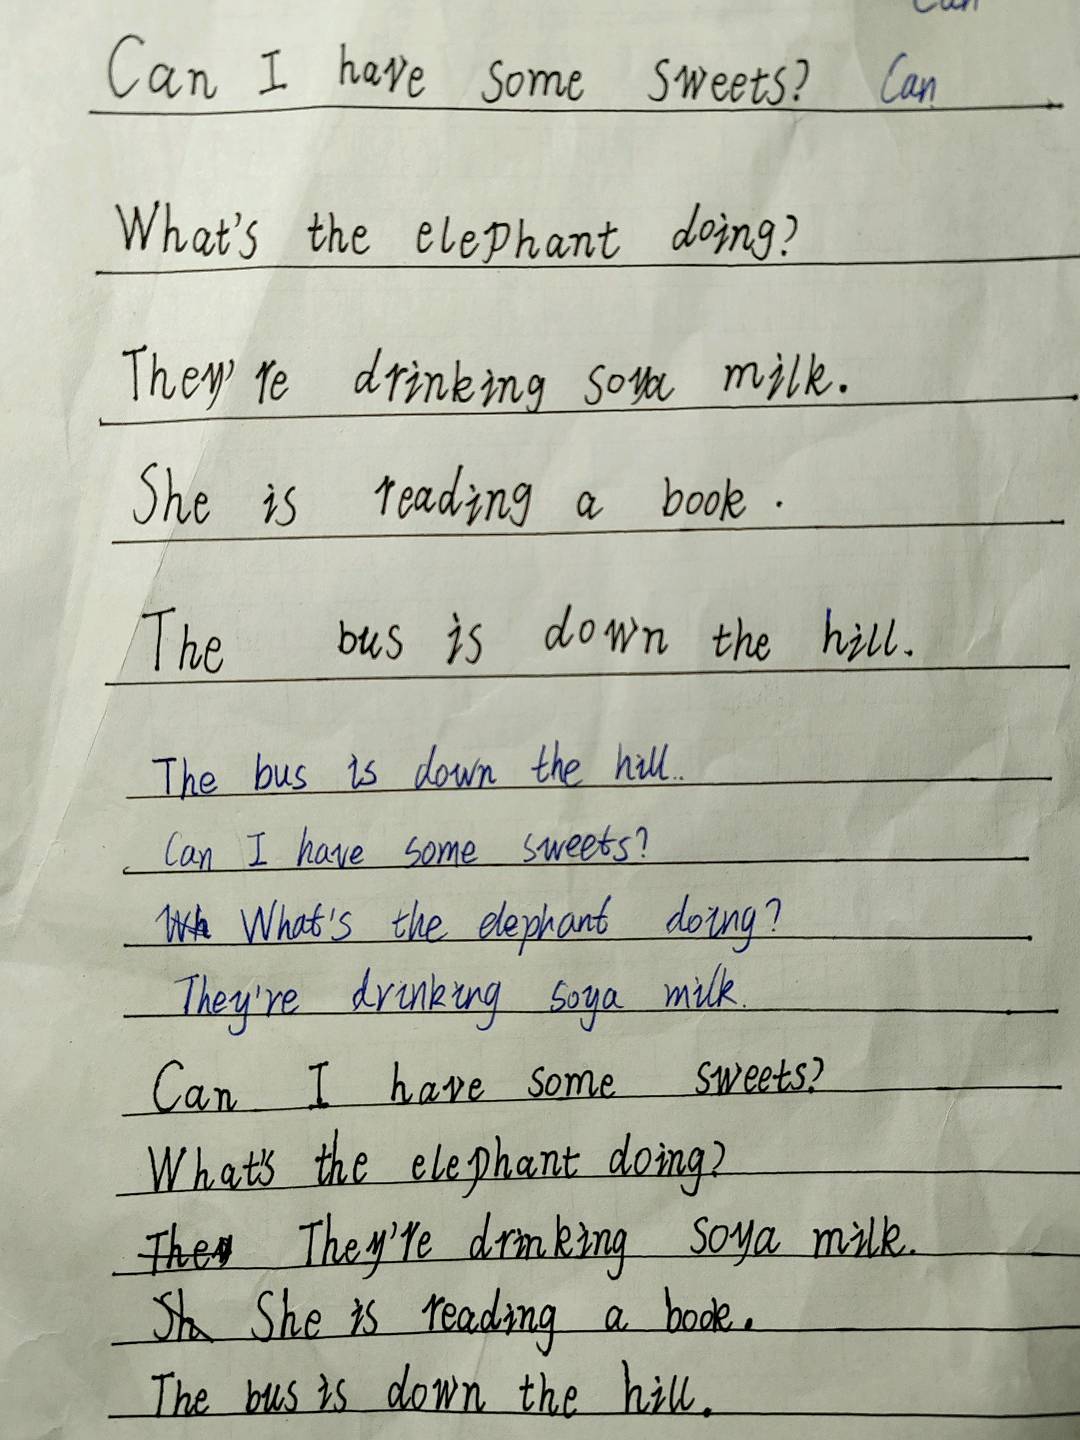 Can
Can I have some sweets? Can
What's the elephant doing?
They're drinking soya milk.
She is reading a book.
The bus is down the hill.
The bus is down the hill..
Can I have some sweets?
Wh What's the elephant doing?
They're drinking soya milk.
Can I have some sweets?
What's the elephant doing?
They They're drinking soya milk.
Sh She is reading a book.
The bus is down the hill.